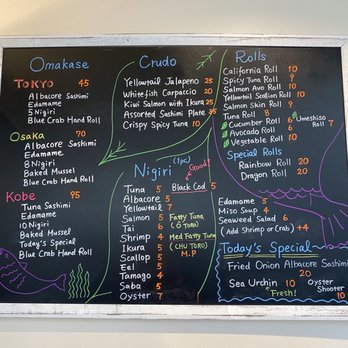 Omakase
TOKYO 45
Albacore Sashimi
Edamame
5 Nigiri
Blue Crab Hand Roll
Osaka 70
Albacore Sashimi
Edamame
8 Nigiri
Baked Mussel
Blue Crab Hand Roll
Kobe 95
Tuna Sashimi
Edamame
10 Nigiri
Baked Mussel
Today's Special
Blue Crab Hand Roll
Crudo
Yellowtail Jalapeno 25
Whitefish Carpaccio 20
Kiwi Salmon with Ikura 25
Assorted Sashimi Plate 35
Crispy Spicy Tuna 10
Nigiri (1pc)
Tuna 5
Albacore 5
Yellowtail 7
Salmon 5
Tai 6
Shrimp 4
Ikura 5
Scallop
Eel
Tamago 4
Saba 5
Oyster 7
Good!
Black Cod 5
Fatty Tuna
(O TORO)
Med Fatty Tuna
(CHU TORO)
M.P
Rolls
California Roll 10
Spicy Tuna Roll 9
Salmon Avo Roll 10
Yellowtail Scallion Roll 10
Salmon Skin Roll 9
Tuna Roll
Cucumber Roll 6
Avocado Roll 6
Vegetable Roll 10
Umeshiso
Roll 7
Special Rolls
Rainbow Roll 20
Dragon Roll 20
Edamame 4
Miso Soup 4
Seaweed Salad 6
(Add Shrimp or Crab) +4
Today's Special
Fried Onion Albacore Sashimi
20
Sea Urchin 10
Fresh!
Oyster
Shooter 10